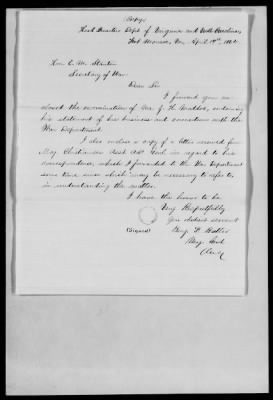 (Copy)
Head Quarters Dept of Virginia and North Carolina,
Fort Monroe, Va, April 1864.
Hon. E. M. Stanton
Secretary of War
Dear Sir
I forward you en-
closed the examination of Mr. containing
his statement of his business and connection with the
War Department.
I also enclose a copy of a letter received from
Maj. in regard to his
correspondence, which I forwarded to the War Department
some time since which may be necessary to refer to
in understanding the matter.
I have the honor to be
Very Respectfully
Your obedient servant
(Signed) Benj. F. Butler
Maj. Genl.